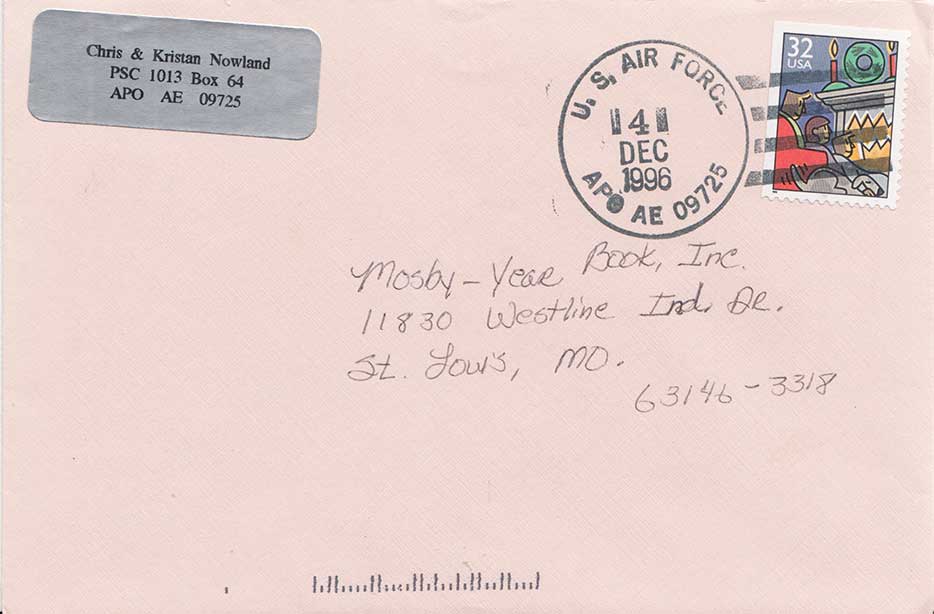 Chris & Kristan Nowland
PSC 1013 Box 64
APO AE 09725
U. S. AIR FORCE
4
DEC
1996
APO AE 09725
32
USA
Mosby-Year Book, Inc.
11830 Westline Ind. Dr.
St. Louis, MO.
63146-3318